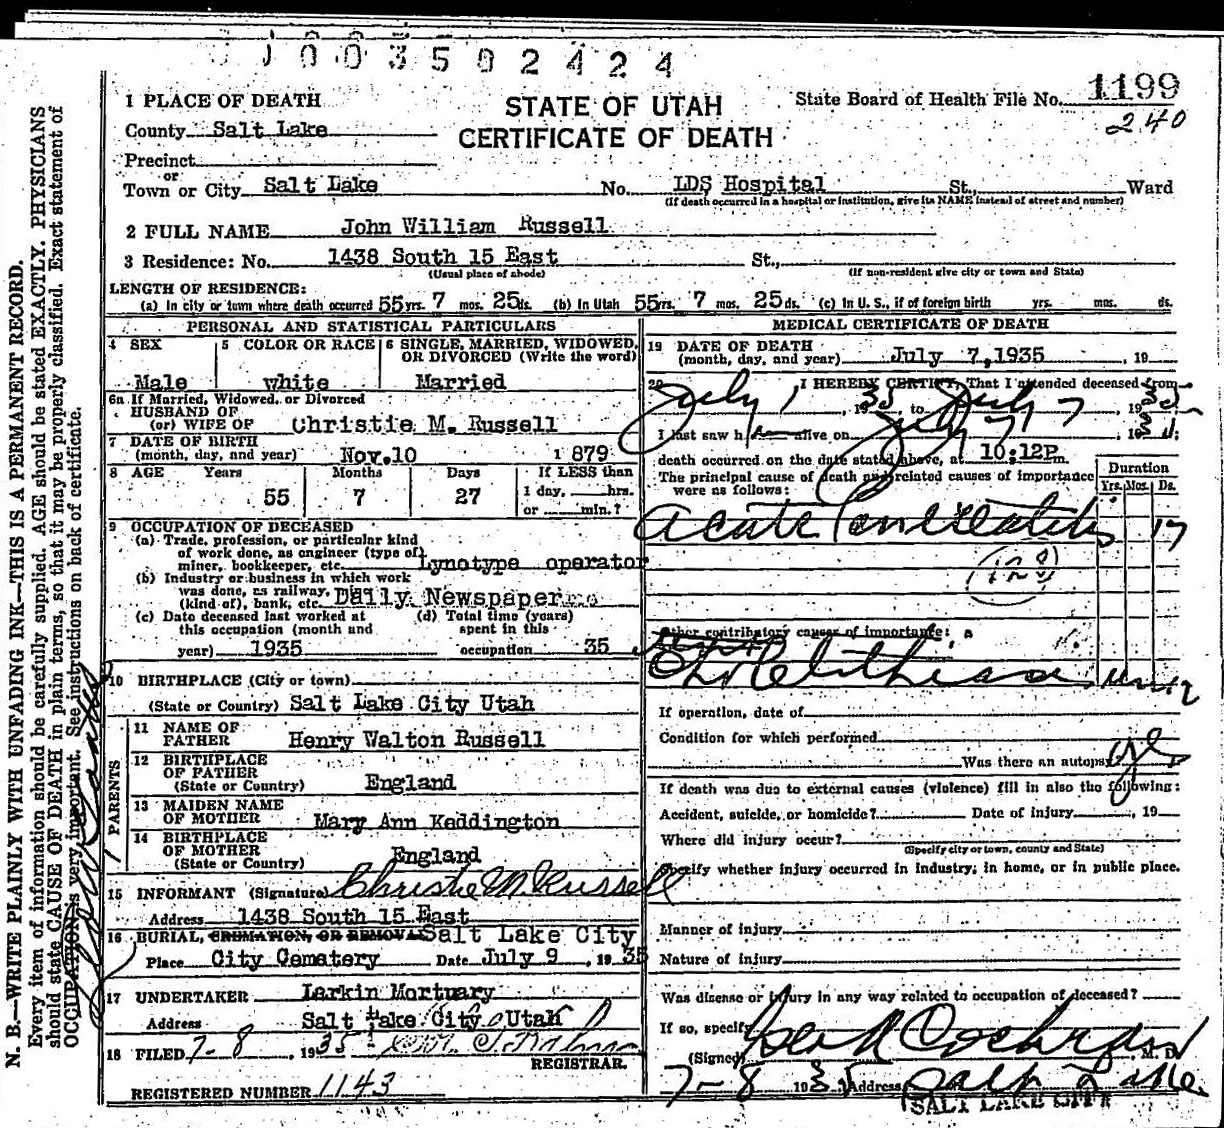 1003502424
1 PLACE OF DEATH
STATE OF UTAH
CERTIFICATE OF DEATH
State Board of Health File No. 1199
240
County Salt Lake
Precinct
or
Town or City Salt Lake No. LDS Hospital St., Ward
(If death occurred in a hospital or institution, give its NAME instead of street and number)
2 FULL NAME John William Russell
3 Residence: No. 1438 South 15 East St.,
(Usual place of abode) (If non-resident give city or town and State)
LENGTH OF RESIDENCE:
(a) In city or town where death occurred 55 yrs. 7 mos. 25 ds. (b) In Utah 55 yrs. 7 mos. 25 ds. (c) In U. S., if of foreign birth yrs. mos. ds.
PERSONAL AND STATISTICAL PARTICULARS
4 SEX 5 COLOR OR RACE 6 SINGLE, MARRIED, WIDOWED,
OR DIVORCED (Write the word)
Male white Married
6a If Married, Widowed, or Divorced
HUSBAND OF
(or) WIFE OF Christie M. Russell
7 DATE OF BIRTH
(month, day, and year) Nov.10 1879
8 AGE Years Months Days If LESS than
1 day, hrs.
55 7 27
or min.?
9 OCCUPATION OF DECEASED
(a) Trade, profession, or particular kind
of work done, as engineer (type of)
miner, bookkeeper, etc. Lynotype operator
(b) Industry or business in which work
was done, as railway,
(kind of), bank, etc. Daily Newspaper
(c) Date deceased last worked at (d) Total time (years)
this occupation (month and spent in this
year) 1935 occupation 35
10 BIRTHPLACE (City or town)
(State or Country) Salt Lake City Utah
PARENTS
11 NAME OF
FATHER Henry Walton Russell
12 BIRTHPLACE
OF FATHER
(State or Country) England
13 MAIDEN NAME
OF MOTHER Mary Ann Keddington
14 BIRTHPLACE
OF MOTHER
(State or Country) England
15 INFORMANT (Signature) Christie M. Russell
Address 1438 South 15 East
16 BURIAL, CREMATION, OR REMOVAL Salt Lake City
Place City Cemetery Date July 9, 1935
17 UNDERTAKER Larkin Mortuary
Address Salt Lake City Utah
18 FILED 7-8, 1935
REGISTRAR.
REGISTERED NUMBER 1143
MEDICAL CERTIFICATE OF DEATH
19 DATE OF DEATH
(month, day, and year) July 7,1935, 19
20 I HEREBY CERTIFY, That I attended deceased from
July 1, 1935, to July 7, 1935
I last saw h alive on July 7, 19
death occurred on the date stated above, at 10:12P m.
The principal cause of death and related causes of importance
were as follows:
Duration
Yrs. Mos. Ds.
Acute Pancreatitis 17
(128)
Other contributory causes of importance:
Cholelithiasis
If operation, date of
Condition for which performed
Was there an autopsy yes
If death was due to external causes (violence) fill in also the following:
Accident, suicide, or homicide? Date of injury , 19
Where did injury occur?
(Specify city or town, county and State)
Specify whether injury occurred in industry, in home, or in public place.
Manner of injury
Nature of injury
Was disease or injury in any way related to occupation of deceased?
If so, specify
(Signed) Cochran, M. D.
7-8 1935 Address Salt Lake
SALT LAKE CITY
N. B.—WRITE PLAINLY WITH UNFADING INK—THIS IS A PERMANENT RECORD.
Every item of information should be carefully supplied. AGE should be stated EXACTLY. PHYSICIANS
should state CAUSE OF DEATH in plain terms, so that it may be properly classified. Exact statement of
OCCUPATION is very important. See instructions on back of certificate.